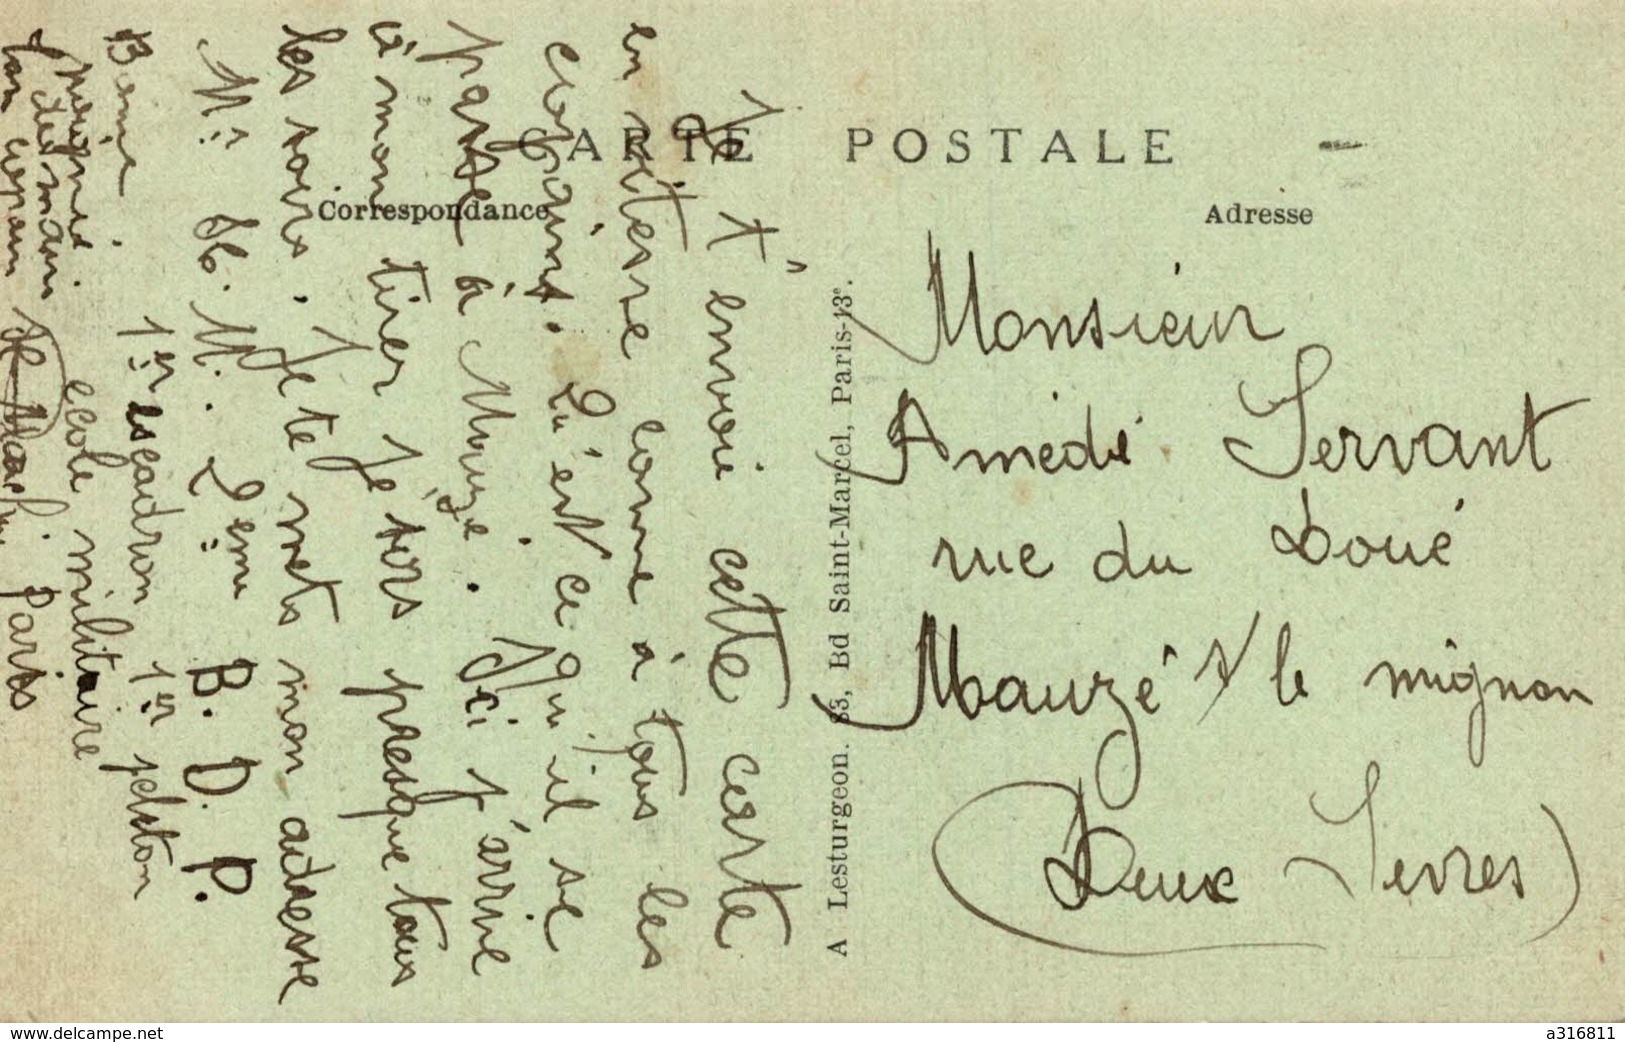 CARTE POSTALE
Correspondance
Adresse
Je t'envoie cette carte
en vitesse comme à tous les
copains. Qu'est ce qu'il se
passe à Mauzé. Ici j'arrive
à m'en tirer je sors presque tous
les soirs. Je te mets mon adresse
Mr H. M. 2eme B. D. P.
1er escadron 1er peloton
école militaire
Paris
ton copain
A Lesturgeon. 83, Bd Saint-Marcel, Paris-13e.
Monsieur
Amédé Servant
rue du Doué
Mauzé s/ le mignon
(Deux Sevres)
www.delcampe.net
a316811